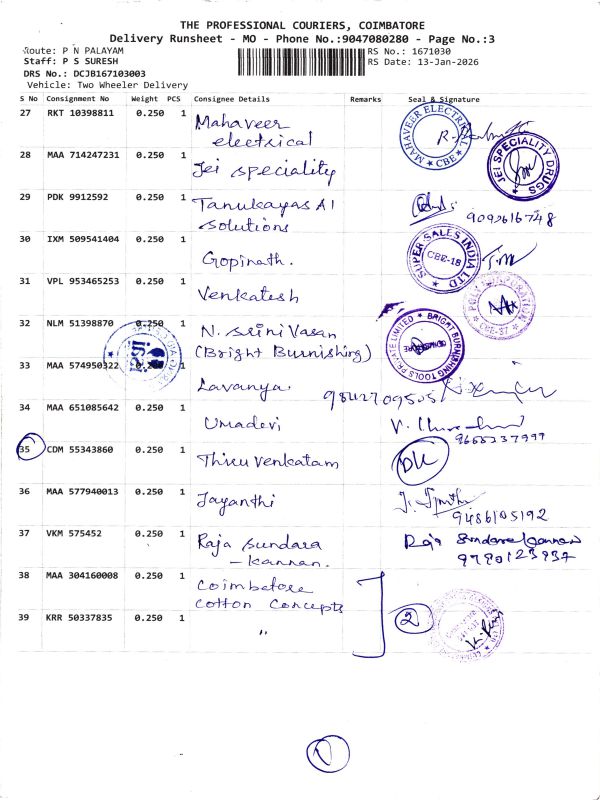 THE PROFESSIONAL COURIERS, COIMBATORE
Delivery Runsheet - MO - Phone No.:9047080280 - Page No.:3
Route: P N PALAYAM
RS No.: 1671030
Staff: P S SURESH
RS Date: 13-Jan-2026
DRS No.: DCJB167103003
Vehicle: Two Wheeler Delivery
S No Consignment No Weight PCS Consignee Details Remarks Seal & Signature
27 RKT 10398811 0.250 1 Mahaveer
electrical
MAHAVEER ELECTRICAL CBE
28 MAA 714247231 0.250 1 Jei speciality
JEI SPECIALITY DRUGS
29 PDK 9912592 0.250 1 Tanukayas AI
solutions
9092616748
30 IXM 509541404 0.250 1 Gopinath.
SUPER SALES INDIA LTD CBE-18
31 VPL 953465253 0.250 1 Venkatesh
32 NLM 51398870 0.250 1 N. Srinivasan
(Bright Burnishing)
BRIGHT BURNISHING TOOLS PRIVATE LIMITED
33 MAA 574950322 1 Lavanya. 9842709505
34 MAA 651085642 0.250 1 Umadevi
35 CDM 55343860 0.250 1 Thiru Venkatam
36 MAA 577940013 0.250 1 Jayanthi
9486105192
37 VKM 575452 0.250 1 Raja Sundara
- Kannan.
Raja
9790123937
38 MAA 304160008 0.250 1 Coimbatore
Cotton Concepts
39 KRR 50337835 0.250 1 "
2
1